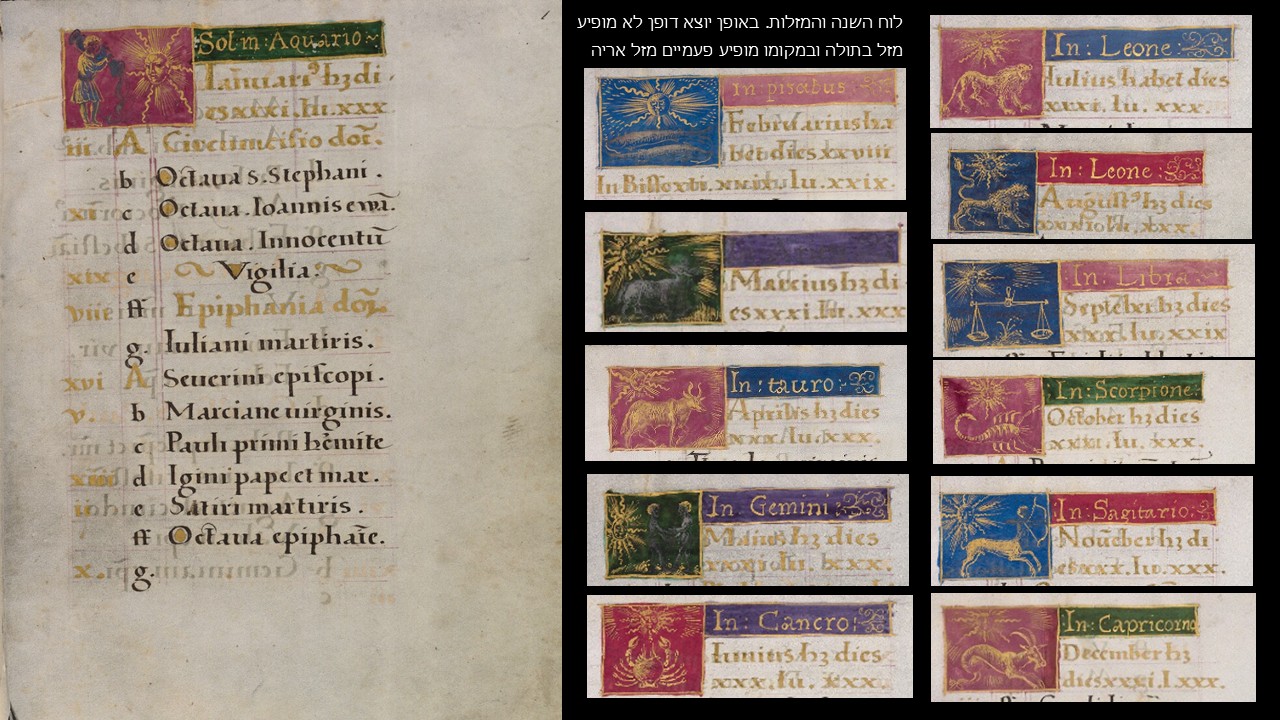 Sol in Aquario
Ianuari⁹ hꝫ di
es xxxi. lu. xxx
iii A Circuncisio doī.
b Octaua s. Stephani .
xi c Octaua . Ioannis ewā.
d Octaua . Innocentū
xix e Vigilia .
viii ff Epiphania doī.
g. Iuliani martiris .
xvi A Seuerini episcopi .
v. b Marciane uirginis .
c Pauli primi hemite
xiii d Igini pape et mar.
ii e Satiri martiris .
ff Octaua epiphaīe.
x. g.
לוח השנה והמזלות. באופן יוצא דופן לא מופיע
מזל בתולה ובמקומו מופיע פעמיים מזל אריה
In piscibus
Februarius ha
bet dies xxviii
In Bissexti. xxix. lu. xxix.
Marcius hꝫ di
es xxxi. lu. xxx
In : tauro :
Aprilis hꝫ dies
xxx. lu. xxx.
In : Gemini :
Maius hꝫ dies
xxxi. lu. xxx.
In : Cancro :
Iunius hꝫ dies
xxx. lu. xxx.
In : Leone :
Iulius habet dies
xxxi. lu. xxx.
In : Leone :
August⁹ hꝫ dies
lu. xxx.
In : Libra
Septēber hꝫ dies
xxx. lu. xxix
In : Scorpione :
October hꝫ dies
xxxi. lu. xxx.
In : Sagitario :
Nouēber hꝫ di
es xxx. lu. xxx.
In : Capricorno
December hꝫ
dies xxxi. l. xxx.